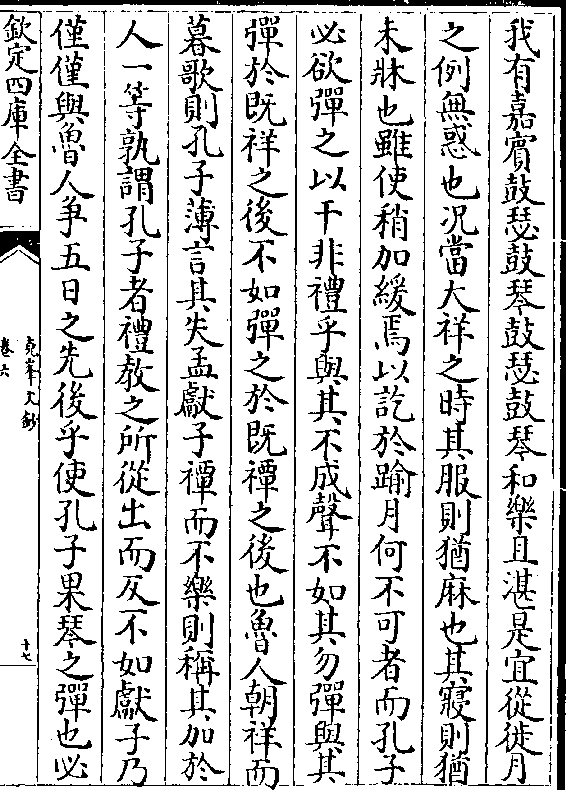 我有嘉賓鼓瑟鼓琴鼓瑟鼓琴和樂且湛是宜從徙月
之例無惑也况當大祥之時其服則猶麻也其寢則猶
未牀也雖使稍加緩焉以訖於踰月何不可者而孔子
必欲彈之以干非禮乎與其不成聲不如其勿彈與其
彈於既祥之後不如彈之於既禫之後也魯人朝祥而
暮歌則孔子薄言其失孟獻子禫而不樂則稱其加於
人一等孰謂孔子者禮教之所從出而反不如獻子乃
僅僅與魯人争五日之先後乎使孔子果琴之彈也必
欽定四庫全書
堯峯文鈔
卷六
十七